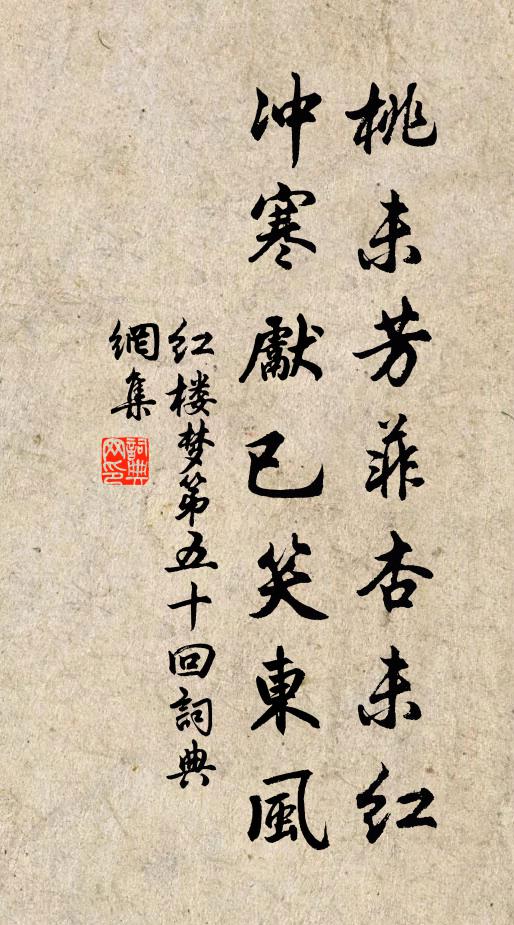 桃未芳菲杏未红
冲寒獻已笑東風
红楼梦第五十回詞典
網集
詞典
网印